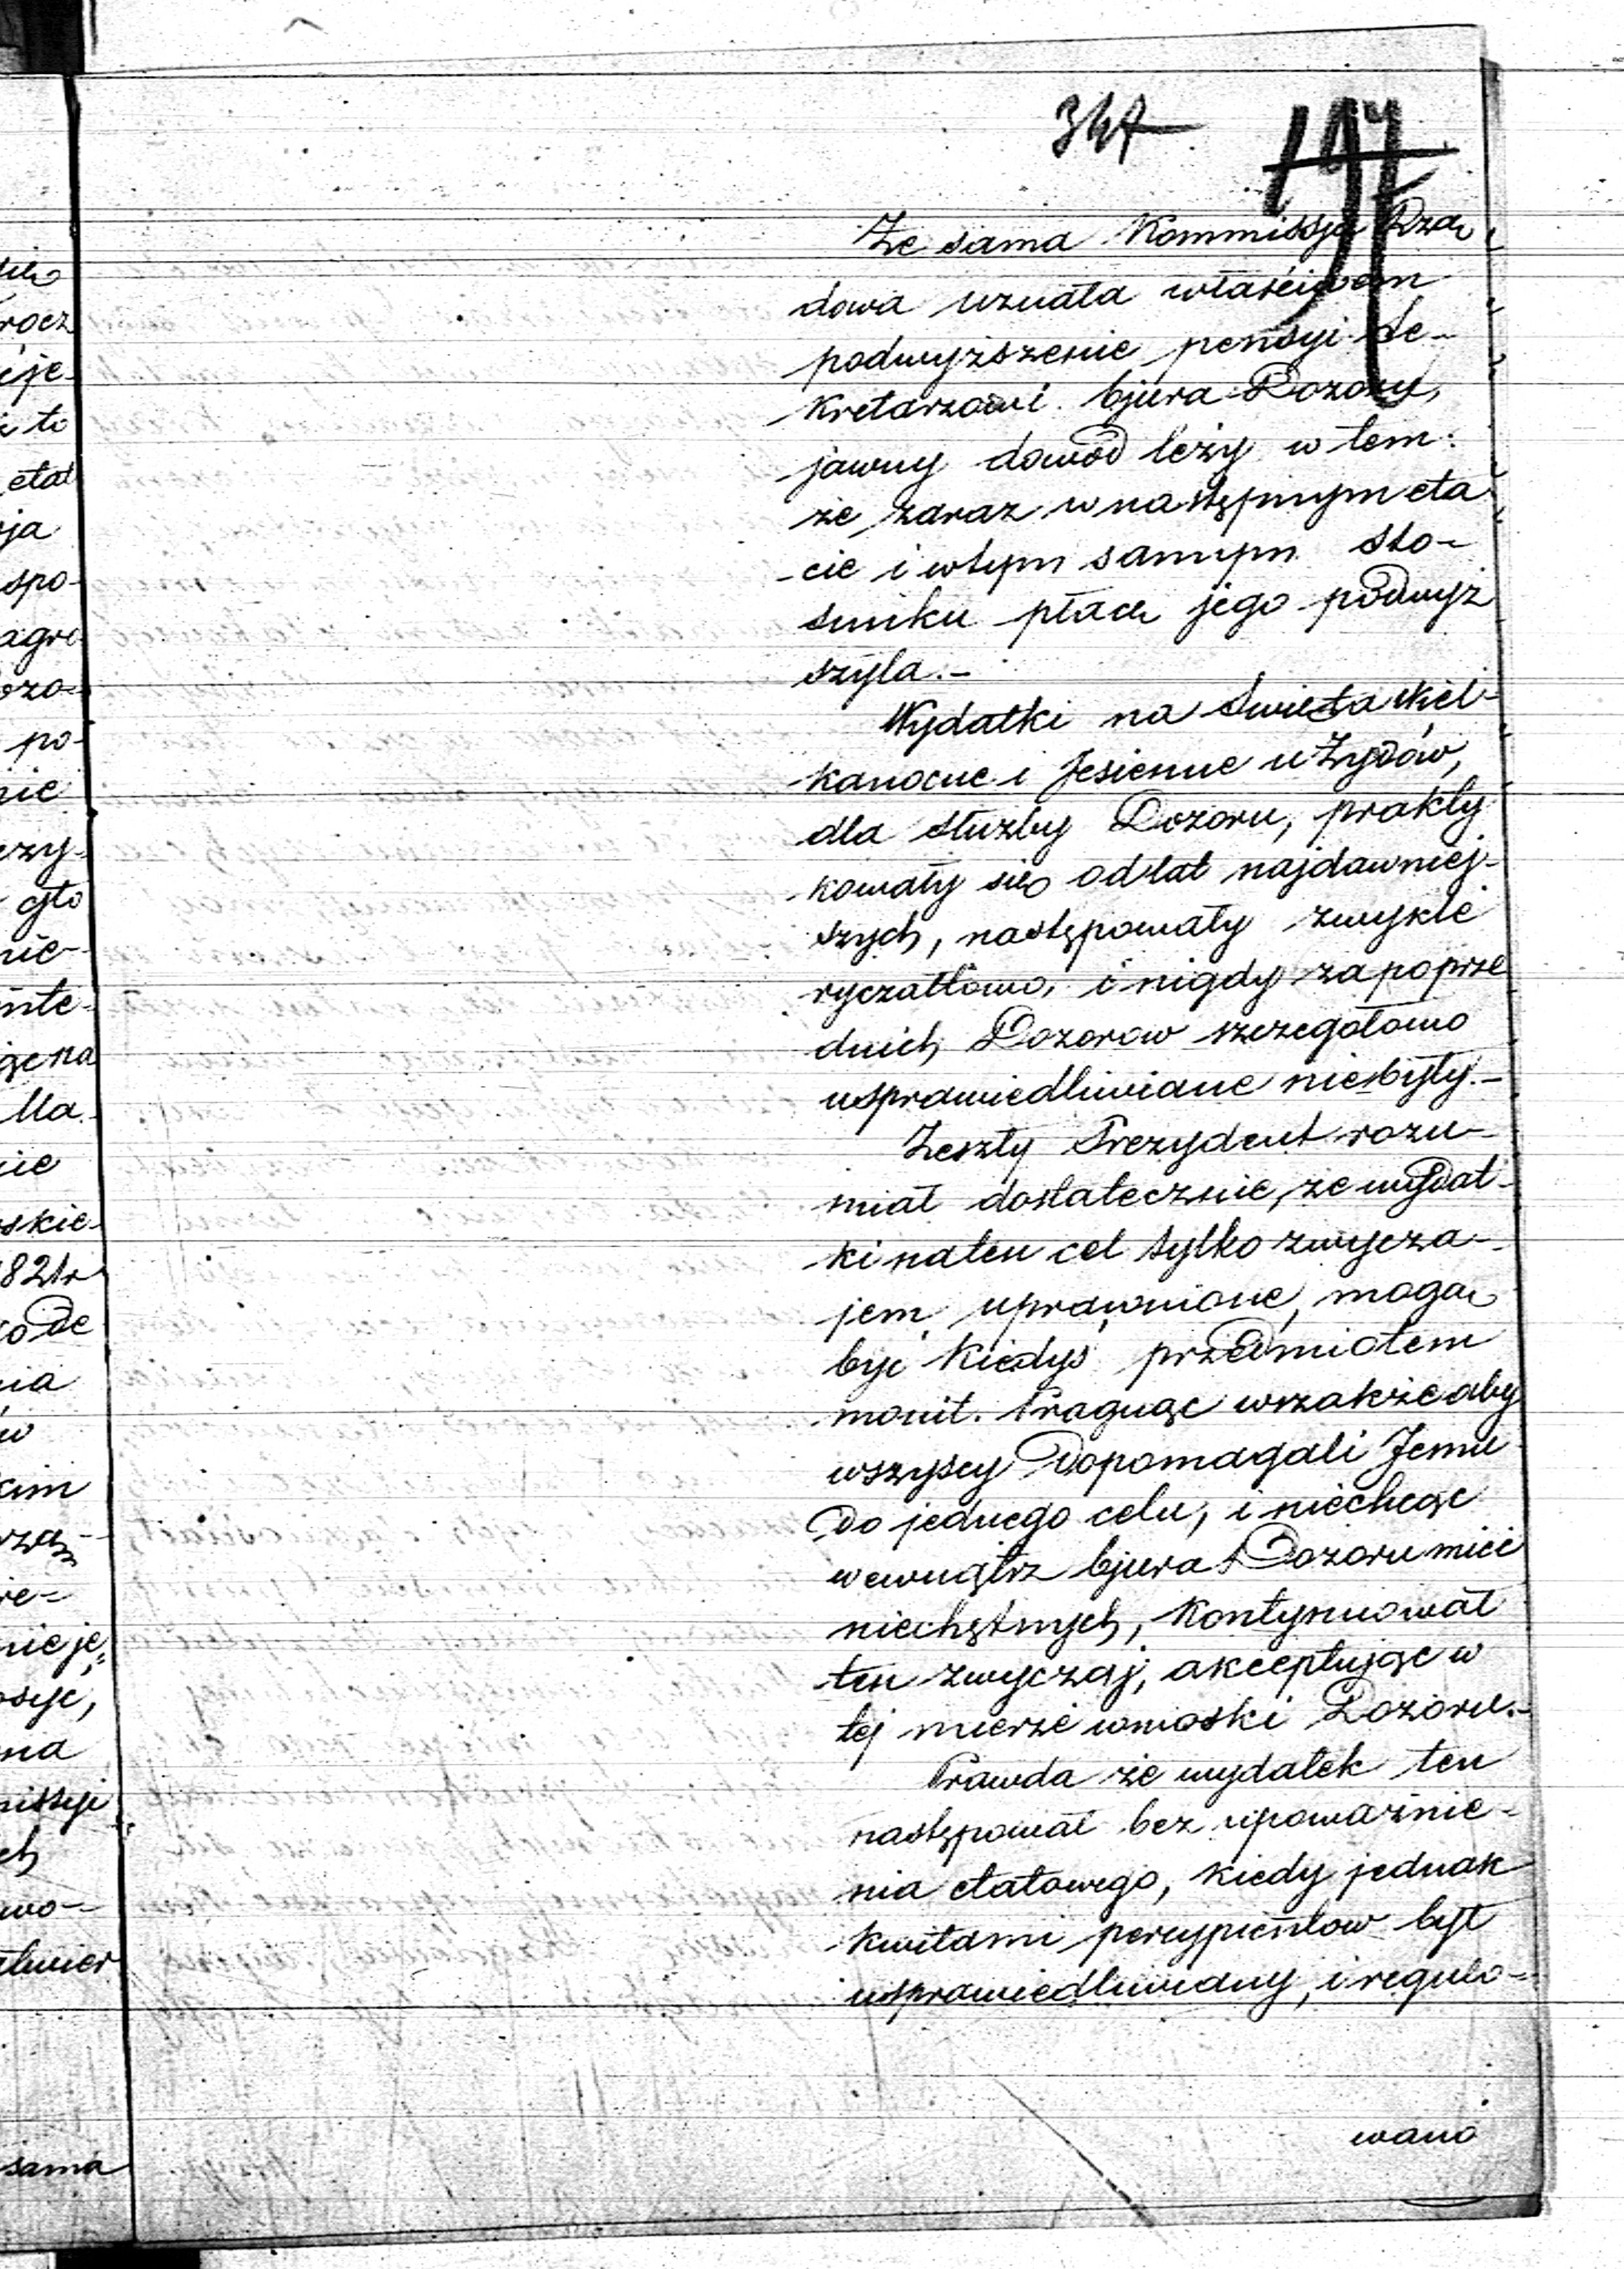 347
197
Że sama Kommissja Rzą
dowa uznała właściwem
podwyższenie pensyi Se-
kretarzowi bjura Dozoru,
jawny dowód leży w tem:
że zaraz w następnym eta
cie i w tym samym sto-
sunku płacę jego podwyż
szyla.-
Wydatki na Święta Wiel-
kanocne i Jesienne u Żydów,
dla służby Dozoru, prakty
kowały się od lat najdawniej-
szych, następowały zwykle
ryczałtowo, i nigdy za poprze
dnich Dozorow szczegołowo
usprawiedliwiane niebyły.-
Zeszły Prezydent rozu-
miał dostatecznie, że wydat-
ki na ten cel tylko zwycza-
jem uprawnione, mogą
być kiedyś przedmiotem
monit. Pragnąc wszakże aby
wszyscy dopomagali Jemu
do jednego celu, i niechcąc
wewnątrz bjura Dozoru mieć
niechętnych, kontynuował
ten zwyczaj, akceptując w
tej mierze wnioski Dozoru.-
Prawda że wydatek ten
następował bez upoważnie-
nia etatowego, kiedy jednak
kwitami percypientow był
usprawiedliwiany, i regulo-
wano
sama